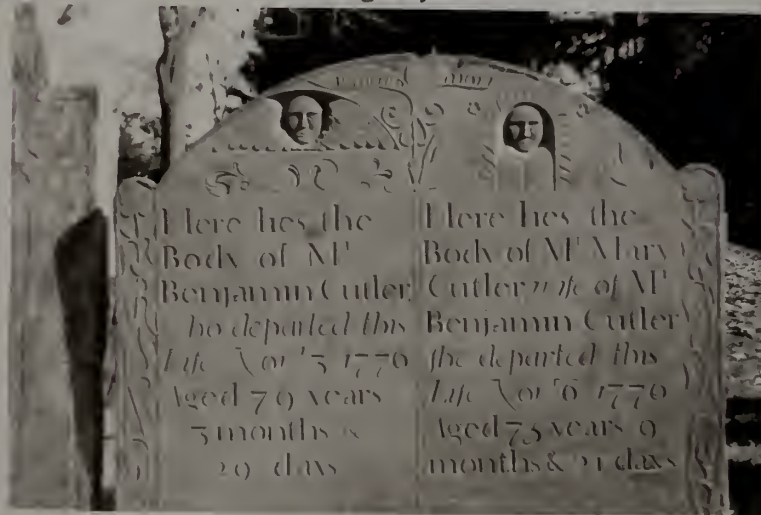 Here lies the
Body of Mr
Benjamin Cutler
he departed this
Life
Aged 79 years
months &
days
Here lies the
Body of Mrs Mary
Cutler wife of Mr
Benjamin Cutler
she departed this
Life
Aged years 9
months & 21 days